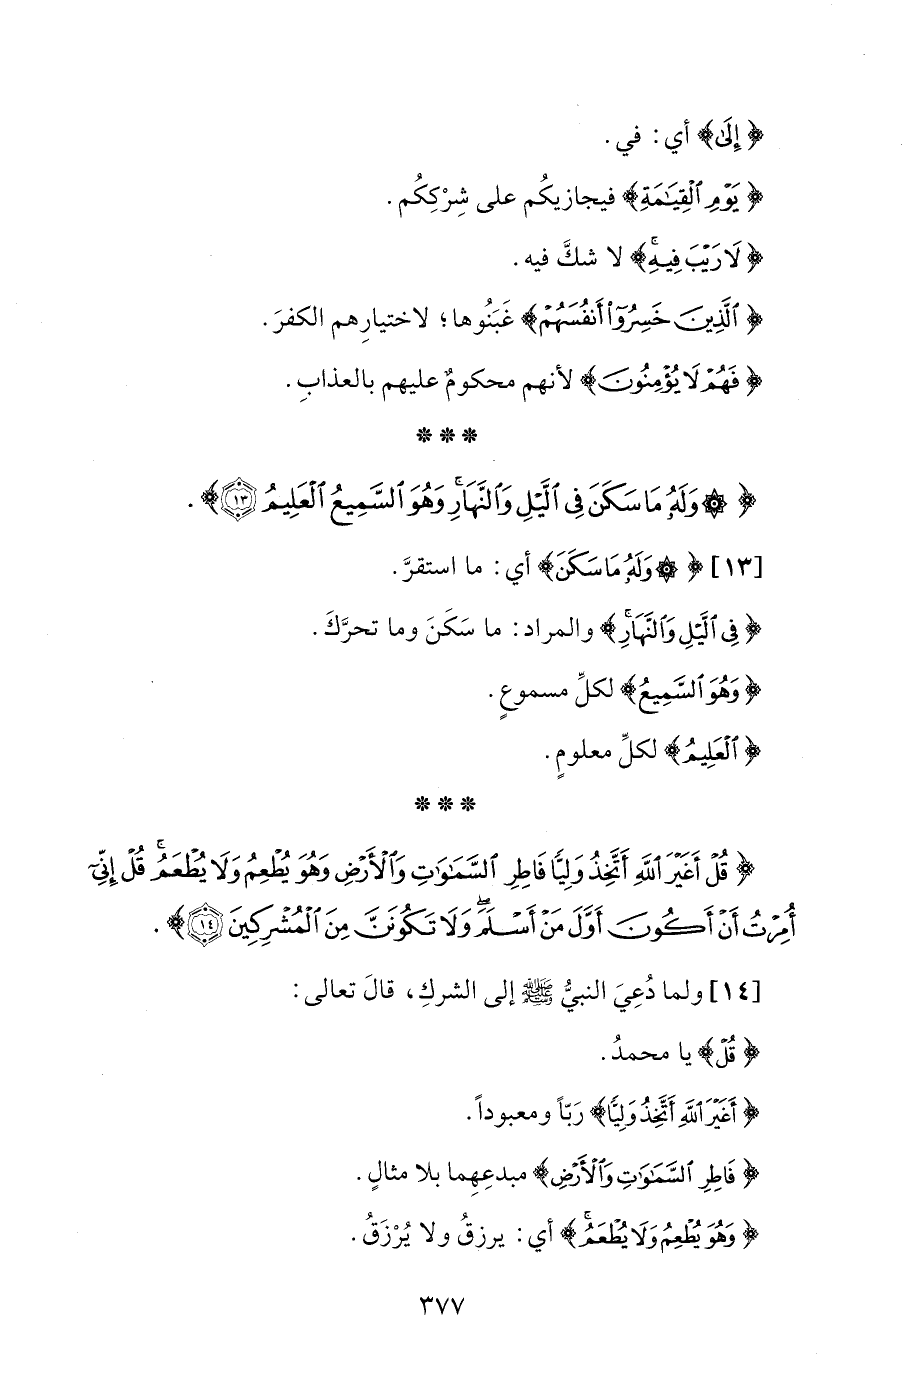 ﴿إِلَىٰ﴾ أي: في.
﴿يَوْمِ ٱلْقِيَٰمَةِ﴾ فيجازيكُم على شِرْكِكُم.
﴿لَا رَيْبَ فِيهِۚ﴾ لا شكَّ فيه.
﴿ٱلَّذِينَ خَسِرُوٓا۟ أَنفُسَهُمْ﴾ غَبَنُوها؛ لاختيارِهم الكفرَ.
﴿فَهُمْ لَا يُؤْمِنُونَ﴾ لأنهم محكومٌ عليهم بالعذابِ.
***
﴿۞ وَلَهُۥ مَا سَكَنَ فِى ٱلَّيْلِ وَٱلنَّهَارِۚ وَهُوَ ٱلسَّمِيعُ ٱلْعَلِيمُ ١٣﴾.
[١٣] ﴿۞ وَلَهُۥ مَا سَكَنَ﴾ أي: ما استقرَّ.
﴿فِى ٱلَّيْلِ وَٱلنَّهَارِۚ﴾ والمراد: ما سَكَنَ وما تحرَّكَ.
﴿وَهُوَ ٱلسَّمِيعُ﴾ لكلِّ مسموعٍ.
﴿ٱلْعَلِيمُ﴾ لكلِّ معلومٍ.
***
﴿قُلْ أَغَيْرَ ٱللَّهِ أَتَّخِذُ وَلِيًّا فَاطِرِ ٱلسَّمَٰوَٰتِ وَٱلْأَرْضِ وَهُوَ يُطْعِمُ وَلَا يُطْعَمُۗ قُلْ إِنِّىٓ
أُمِرْتُ أَنْ أَكُونَ أَوَّلَ مَنْ أَسْلَمَۖ وَلَا تَكُونَنَّ مِنَ ٱلْمُشْرِكِينَ ١٤﴾.
[١٤] ولما دُعِيَ النبيُّ ﷺ إلى الشركِ، قالَ تعالى:
﴿قُلْ﴾ يا محمدُ.
﴿أَغَيْرَ ٱللَّهِ أَتَّخِذُ وَلِيًّا﴾ رَبّاً ومعبوداً.
﴿فَاطِرِ ٱلسَّمَٰوَٰتِ وَٱلْأَرْضِ﴾ مبدعِهِما بلا مثالٍ.
﴿وَهُوَ يُطْعِمُ وَلَا يُطْعَمُۗ﴾ أي: يرزقُ ولا يُرْزَقُ.
٣٧٧